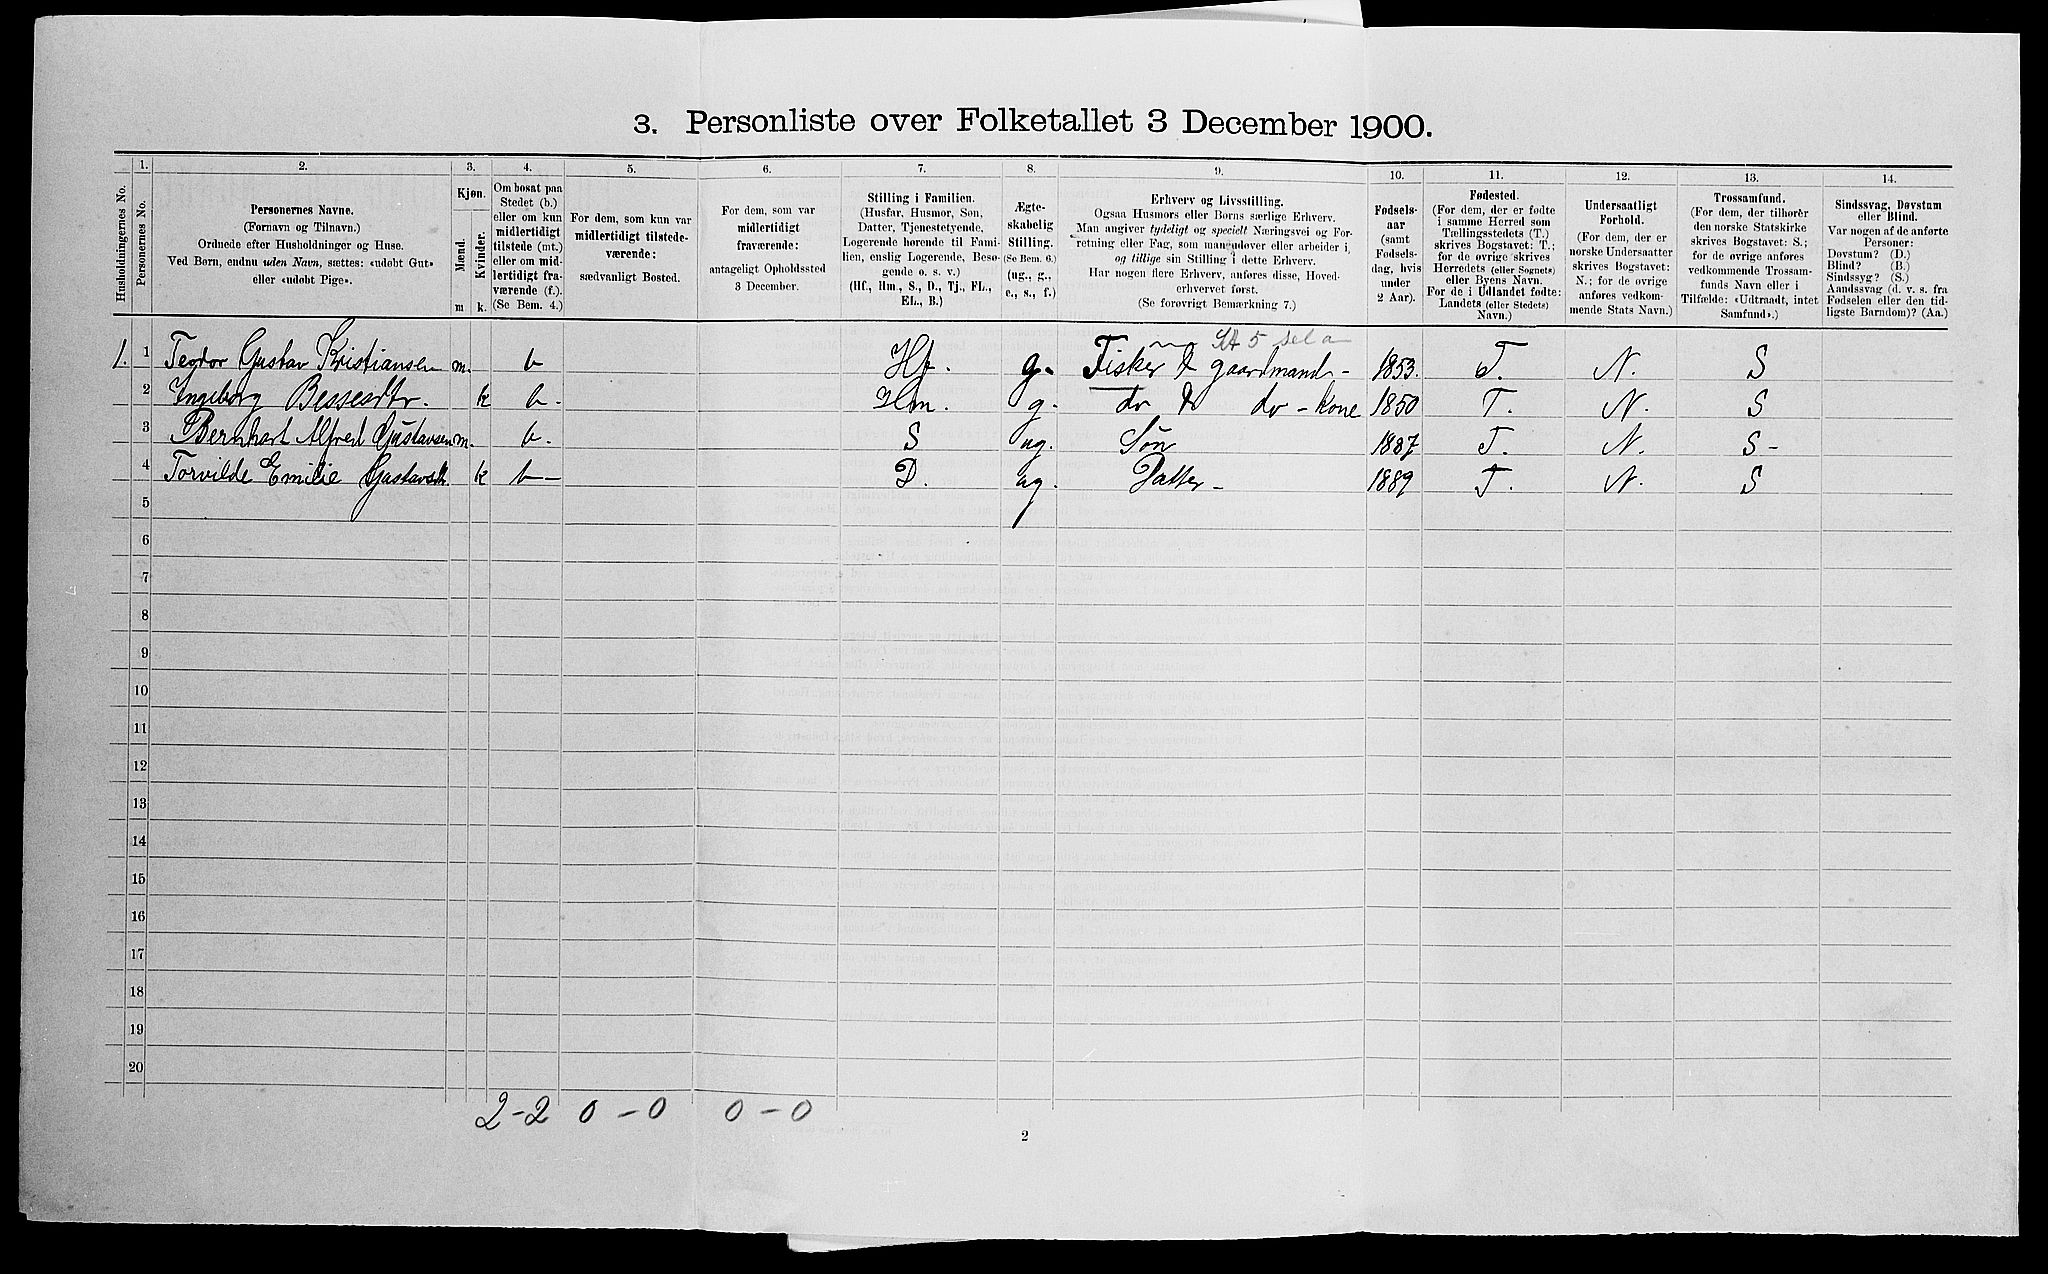 3. Personliste over Folketallet 3 December 1900.
Husholdningernes No.
1.
Personernes No.
2.
Personernes Navne.
(Fornavn og Tilnavn.)
Ordnede efter Husholdninger og Huse.
Ved Børn, endnu uden Navn, sættes: «udøbt Gut»
eller «udøbt Pige».
3.
Kjøn.
Mænd.
Kvinder.
m
k.
4.
Om bosat paa
Stedet (b.)
eller om kun
midlertidigt
tilstede (mt.)
eller om mid-
lertidigt fra-
værende (f.).
(Se Bem. 4.)
5.
For dem, som kun var
midlertidigt tilstede-
værende:
sædvanligt Bosted.
6.
For dem, som var
midlertidigt
fraværende:
antageligt Opholdssted
3 December.
7.
Stilling i Familien.
(Husfar, Husmor, Søn,
Datter, Tjenestetyende,
Logerende hørende til Fami-
lien, enslig Logerende, Besø-
gende o. s. v.)
(Hf., Hm., S., D., Tj., FL.,
EL., B.)
8.
Ægte-
skabelig
Stilling.
(Se Bem. 6.)
(ug., g.,
e., s., f.)
9.
Erhverv og Livsstilling.
Ogsaa Husmors eller Børns særlige Erhverv.
Man angiver tydeligt og specielt Næringsvei og For-
retning eller Fag, som man udøver eller arbeider i,
og tillige sin Stilling i dette Erhverv.
Har nogen flere Erhverv, anføres disse, Hoved-
erhvervet først.
(Se forøvrigt Bemærkning 7.)
10.
Fødsels-
aar
(samt
Fødsels-
dag, hvis
under
2 Aar).
11.
Fødested.
(For dem, der er fødte
i samme Herred som
Tællingsstedets (T.)
skrives Bogstavet: T.;
for de øvrige skrives
Herredets (eller Sognets)
eller Byens Navn.
For de i Udlandet fødte:
Landets (eller Stedets)
Navn.)
12.
Undersaatligt
Forhold.
(For dem, der er
norske Undersaatter
skrives Bogstavet:
N.; for de øvrige
anføres vedkom-
mende Stats Navn.)
13.
Trossamfund.
(For dem, der tilhører
den norske Statskirke
skrives Bogstavet: S.;
for de øvrige anføres
vedkommende Trossam-
funds Navn eller i
Tilfælde: «Udtraadt, intet
Samfund».)
14.
Sindssvag, Døvstum
eller Blind.
Var nogen af de anførte
Personer:
Døvstum? (D.)
Blind? (B.)
Sindssyg? (S.)
Aandssvag (d. v. s. fra
Fødselen eller den tid-
ligste Barndom)? (Aa.)
1. 1 Teodor Gustav Kristiansen m. b Hf. g. Fisker & gaardmand - 1853. T. N. S
2 Ingeborg Bessesdtr. k b. Hm. g. do & do - Kone 1850 T. N. S
3 Bernhart Alfred Gustavsen m. b. S ug. Søn 1887 T. N. S -
4 Torvilde Emilie Gustavsdt. k b - D. ug. Datter - 1889 T. N. S
5
6
7
8
9
10
11
12
13
14
15
16
17
18
19
20
2 - 2 0 - 0 0 - 0
2